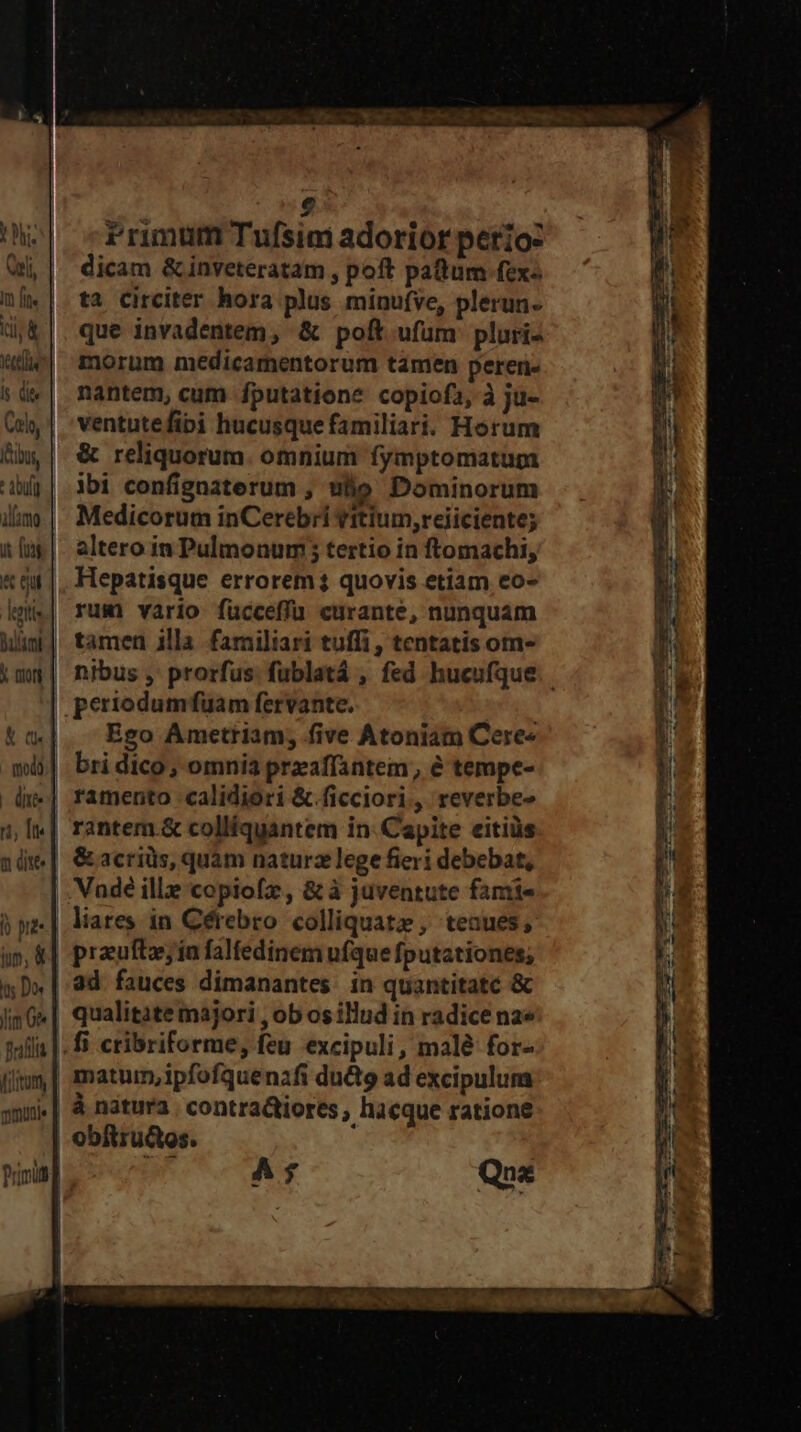 9
Primum Tuſsim adorior perio-
dicam & inveteratam, poſt paſtum ſex-
ta circiter hora plus minuſve, plerun-
que invadentem, & poſt uſum pluri-
morum medicamentorum tamen peren-
nantem, cum ſputatione copioſa, à ju-
ventute ſibi hucusque familiari. Horum
& reliquorum omnium ſymptomatum
ibi conſignaterum, uno Dominorum
Medicorum in Cerebri vitium, reiiciente;
altero in Pulmonum; tertio in ſtomachi,
Hepatisque errorem; quovis etiam eo-
rum vario ſucceſſu curante, nunquam
tamen illa familiari tuſſi, tentatis om-
nibus, prorſus ſublatâ, ſed hucuſque
periodum ſuam ſervante.
Ego Ametriam, ſive Atoniam Cere-
bri dico, omnia præaſſantem, è tempe-
ramento calidiori & ſicciori, reverbe-
rantem & colliquantem in Capite citiùs
& acriùs, quàm naturæ lege fieri debebat,
Vndè illæ copioſæ, & à juventute fami-
liares in Cérebro colliquatæ, tenues,
præuſtæ, in ſalſedinem uſque ſputationes,
ad fauces dimanantes in quantitate &
qualitate majori, ob os illud in radice na-
ſi cribriforme, ſeu excipuli, malè for-
matum, ipſoſque naſi ducto ad excipulum
à natura contractiores, hacque ratione
obſtructos.
A 5 Quæ